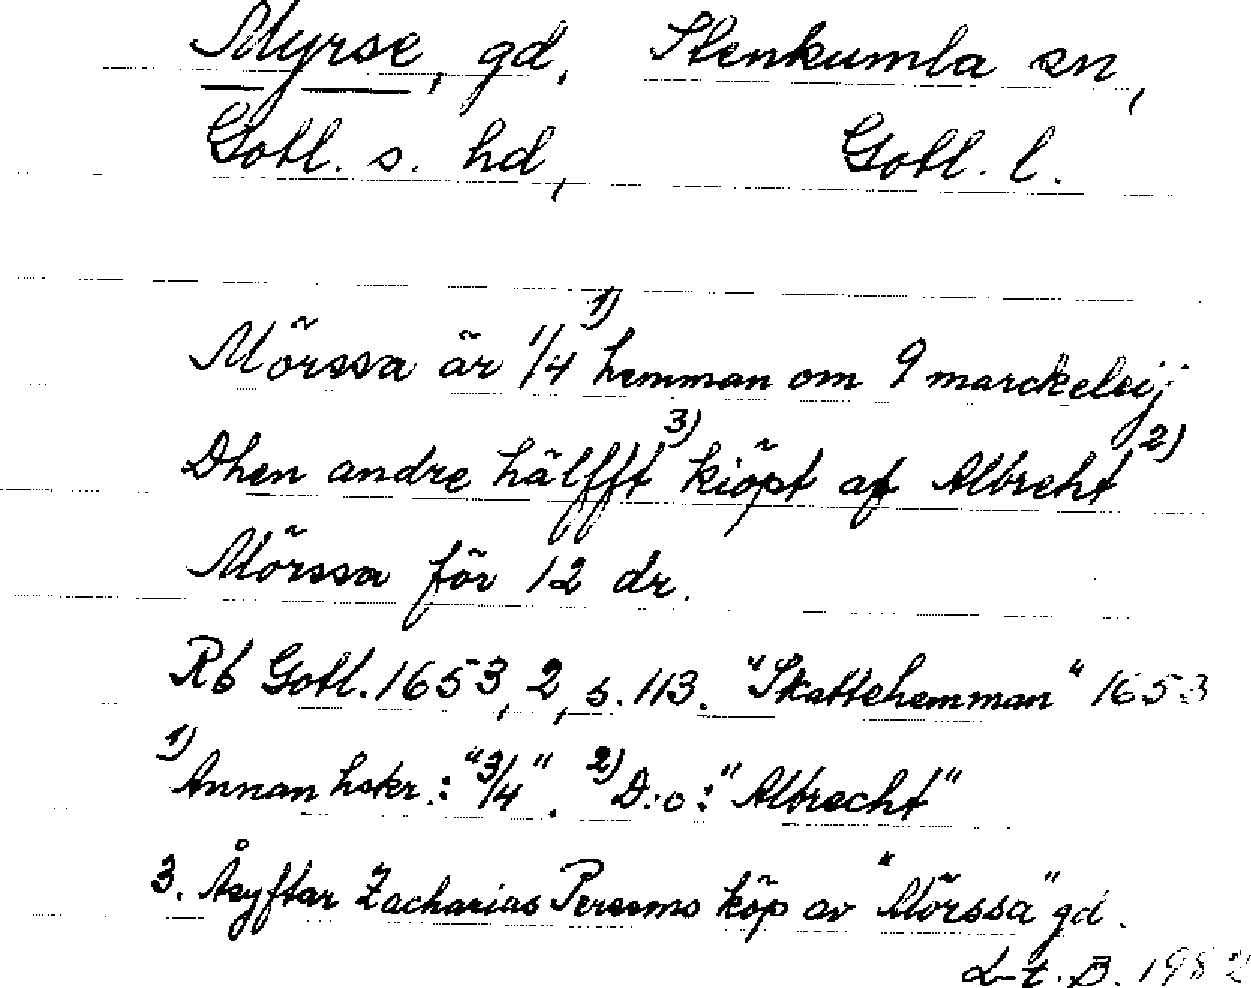 Myrse, gd, Stenkumla sn,
Gotl. s. hd, Gotl. l.
Mörssa är 1/4 1) hemman om 9 marckeleij
Dhen andre hälfft 3) kiöpt af Albreht 2)
Mörssa för 12 dr.
Rb Gotl. 1653, 2, s. 113. "Skattehemman" 1653
1) Annan hskr.: "3/4". 2) D:o: "Albrecht"
3. Åsyftar Zacharias Perssons köp av "Mörssa" gd.
L-t. B. 1982